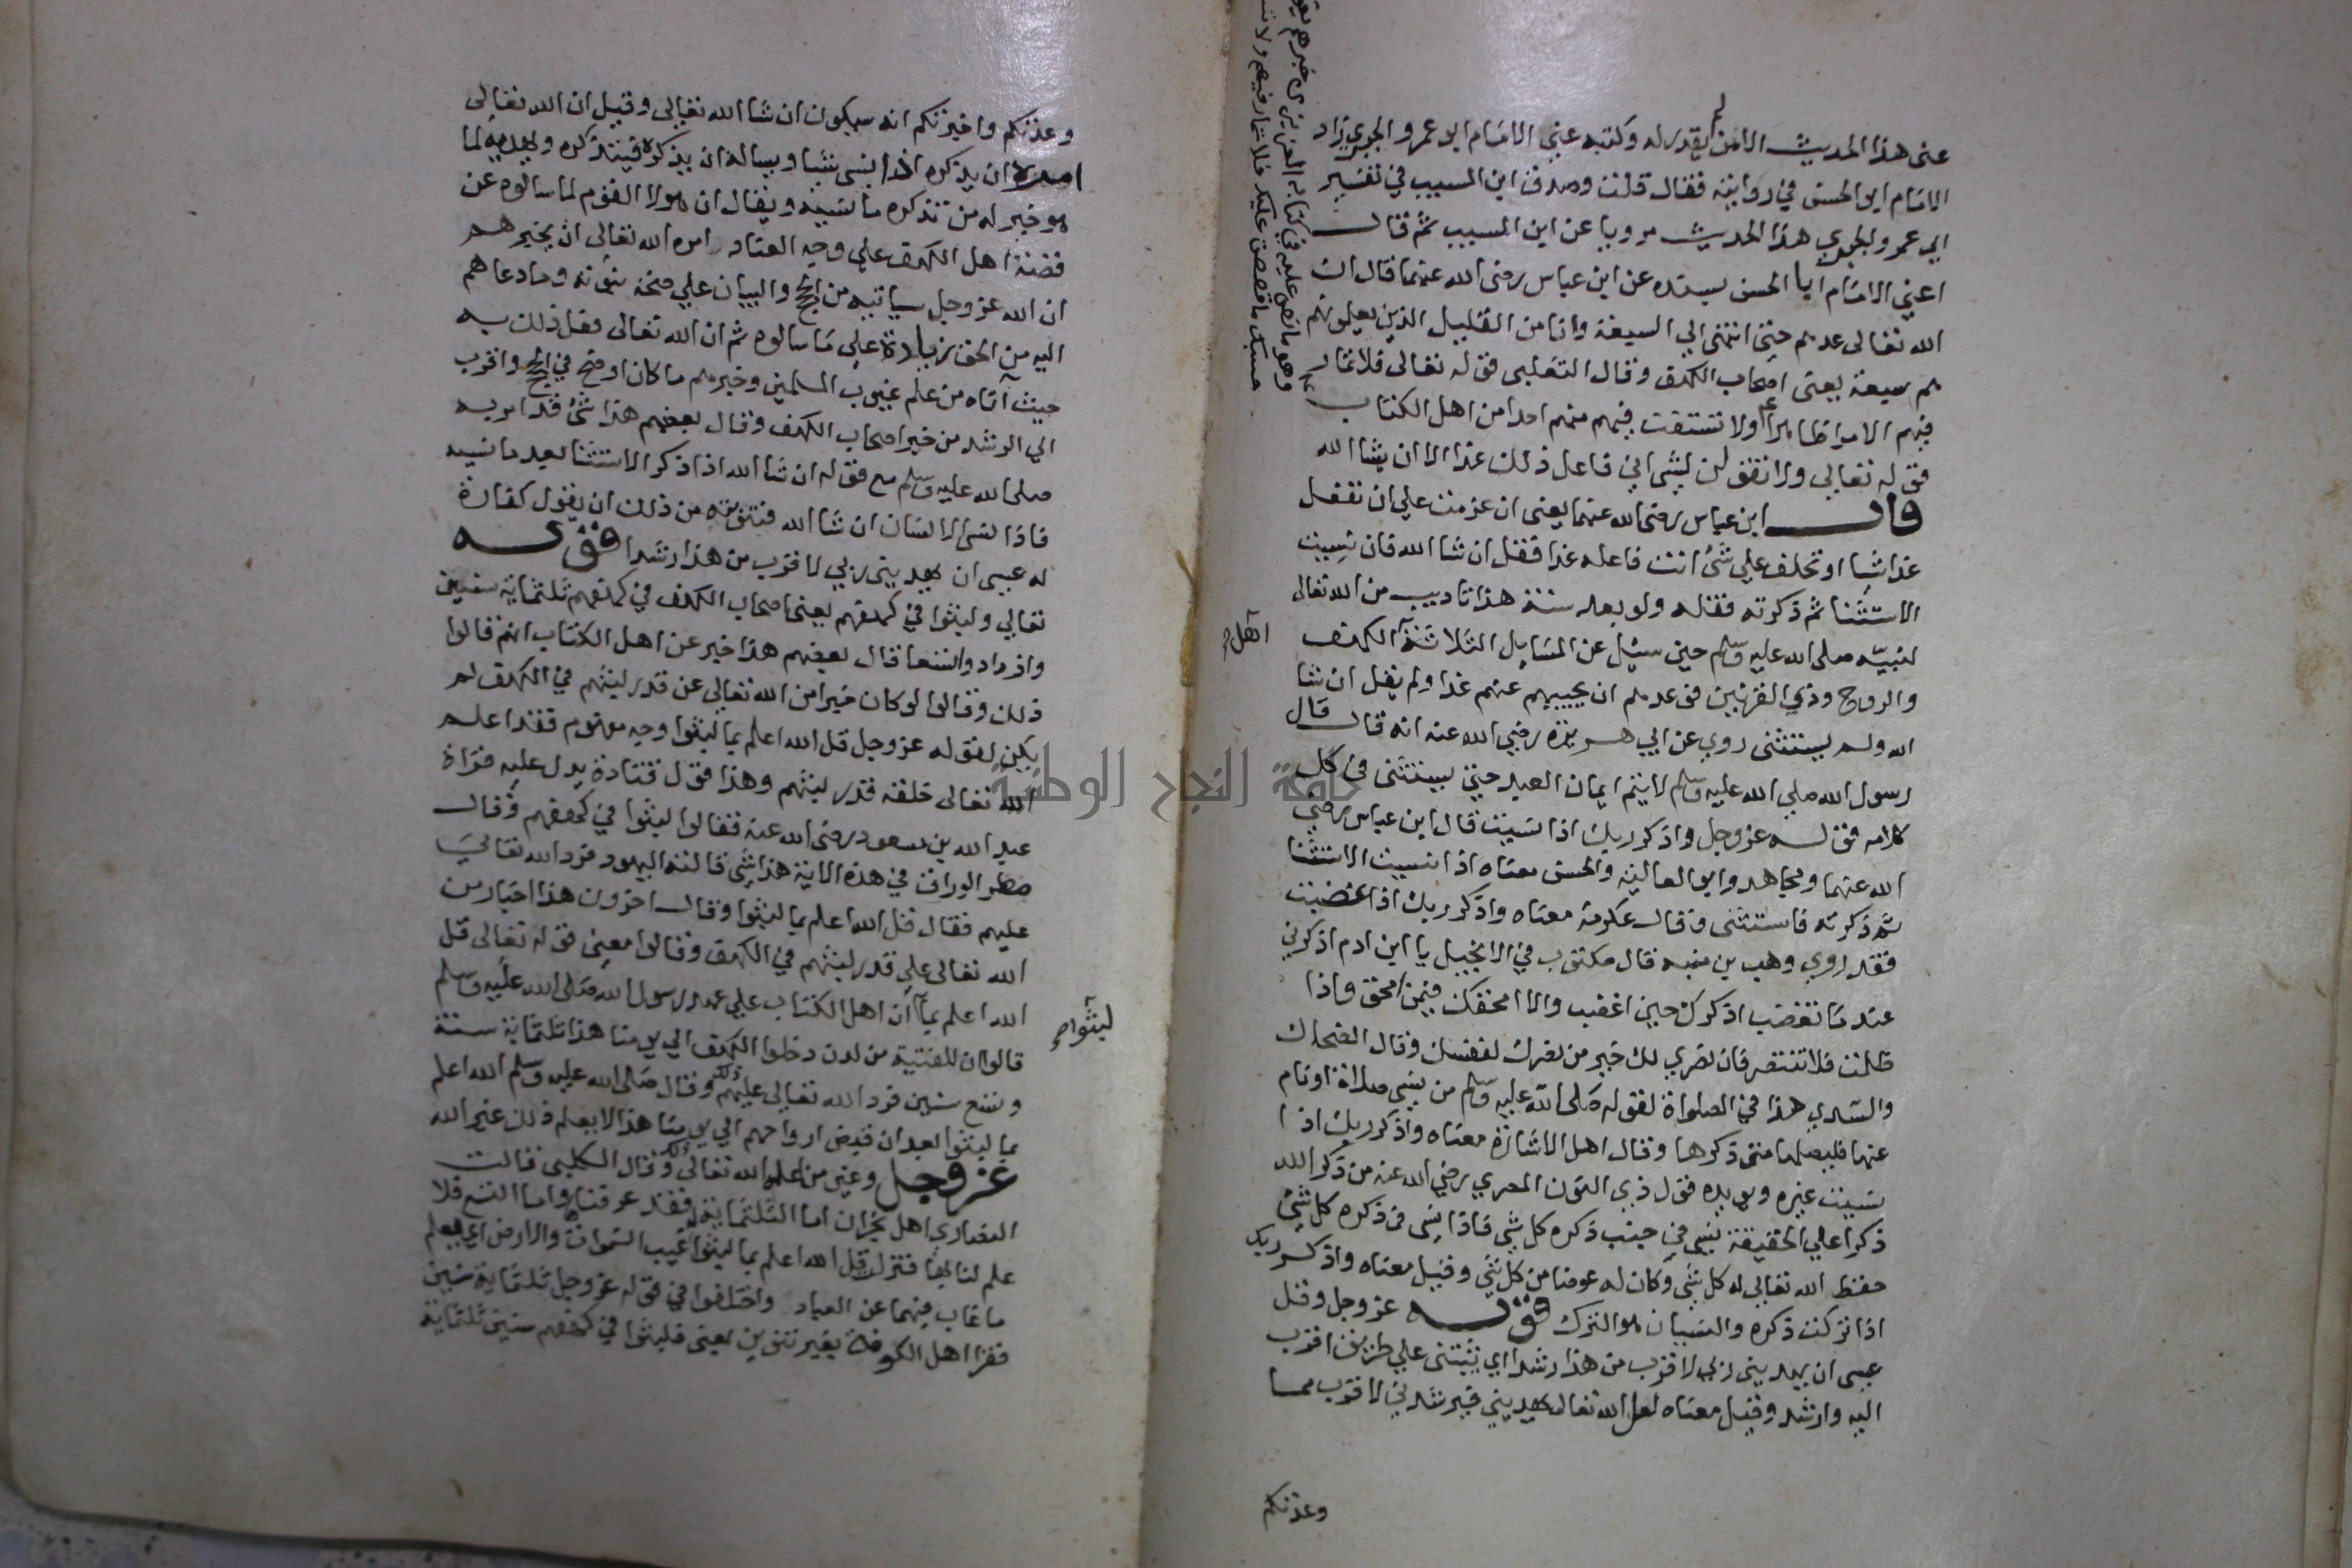 عنى هذا الحديث الا من لم يقدر له وكتبه عني الامام ابو عمرو الجوي زاد
الامام ابو الحسن في روايته فقال قلت وصدق ابن المسيب في تفسير
ابي عمرو الجوي هذا الحديث مرويا عن ابن المسيب ثم قال
اعني الامام ابا الحسن بسنده عن ابن عباس رضى الله عنهما قال ان
الله تعالى عدهم حتى انتهى الي السبعة وانا من القليل الذين يعلمونهم
هم سبعة يعنى اصحاب الكهف وقال الثعلبي قوله تعالى فلا تمار
فيهم الا مرا ظاهرا ولا تستفت فيهم منهم احدا من اهل الكتاب
قوله تعالي ولا تقولن لشي اني فاعل ذلك غدا الا ان يشا الله
قال ابن عباس رضى الله عنهما يعنى ان عزمت علي ان تفعل
غدا شيا او تحلف علي شئ انت فاعله غدا فقل ان شا الله فان نسيت
الاستثنا ثم ذكرته فقله ولو بعد سنة هذا تاديب من الله تعالى
لنبيه صلى الله عليه وسلم حين سيل عن المسايل الثلاثة الكهف
والروح وذي القرنين فوعدهم ان يجيبهم عنهم غدا ولم يقل ان شا
الله ولم يستثنى روي عن ابي هريرة رضي الله عنه انه قال قال
رسول الله صلي الله عليه وسلم لا يتم ايمان العبد حتى يستثنى في كل
كلامه قوله عز وجل واذكر ربك اذا نسيت قال ابن عباس رضي
الله عنهما ومجاهد وابو العالية والحسن معناه اذا نسيت الاستثنا
ثم ذكرته فاستثنى وقال عكرمة معناه واذكر ربك اذا غضبت
فقد روي وهب بن منبه قال مكتوب في الانجيل يا ابن ادم اذكرني
عند ما تغضب اذكرك حين اغضب والا امحقك فيمن امحق واذا
ظلمت فلا تنتصر فان نصري لك خير من نصرك لنفسك وقال الضحاك
والسدي هذا في الصلواة لقوله صلى الله عليه وسلم من نسى صلاة او نام
عنها فليصلها متى ذكرها وقال اهل الاشارة معناه واذكر ربك اذا
نسيت غيره ويويده قول ذي النون المصري رضي الله عنه من ذكر الله
ذكرا علي الحقيقة نسي في جنب ذكره كل شي فاذا نسى في ذكره كل شئ
حفظ الله تعالي له كل شي وكان له عوضا من كل شي وقيل معناه واذكر ربك
اذا تركت ذكره والنسيان هو الترك قوله عز وجل وقل
عسى ان يهديني ربي لاقرب من هذا رشدا اي يثبتنى علي طريق اقرب
اليه وارشد وقيل معناه لعل الله تعالى يهديني فيرشدني لاقرب مما
وعدتكم
اهل
وهو ما نص عليه في كتابه العزيز
حسبك ما قصصت عليك فلا تمار فيهم
وعدتكم واخبرتكم انه سيكون ان شا الله تعالي وقيل ان الله تعالى
امره ان يذكره اذا نسى شيا ويساله ان يذكره فيتذكره ويهديه لما
هو خير له من تذكره ما نسيه ويقال ان هولا القوم لما سالوه عن
قصة اهل الكهف علي وجه العناد امره الله تعالى ان يخبرهم
ان الله عز وجل سياتيه من الحج والبيان علي صحة نبوته وما دعاهم
اليه من الحق زيادة علي ما سالوه ثم ان الله تعالى فعل ذلك به
حيث آتاه من علم غيوب المسلمين وخبرهم ما كان اوضح في الحج واقرب
الي الرشد من خبر اصحاب الكهف وقال بعضهم هذا شئ قد امر به
صلى الله عليه وسلم مع قوله ان شا الله اذا ذكر الاستثنا بعد ما نسيه
فاذا نسى الانسان ان شا الله فتوبته من ذلك ان يقول كفارة
له عسى ان يهديني ربي لاقرب من هذا رشدا قوله
تعالي ولبثوا في كهفهم يعنى اصحاب الكهف في كهفهم ثلثماية سنين
وازدادوا تسعا قال بعضهم هذا خبر عن اهل الكتاب انهم قالوا
ذلك وقالوا لو كان خبرا من الله تعالى عن قدر لبثهم في الكهف لم
يكن لقوله عز وجل قل الله اعلم بما لبثوا وجه مفهوم فقد اعلم
الله تعالى خلقه قدر لبثهم وهذا قول قتادة يدل عليه قراة
عبد الله بن مسعود رضى الله عنه فقالوا لبثوا في كهفهم وقال
مطر الوراق في هذه الاية هذا شي قالته اليهود فرد الله تعالي
عليهم فقال قل الله اعلم بما لبثوا وقال اخرون هذا اخبار من
الله تعالى على قدر لبثهم في الكهف وقالوا معنى قوله تعالى قل
الله اعلم بما ان اهل الكتاب علي عهد رسول الله صلى الله عليه وسلم
قالوا ان للفتية من لدن دخلوا الكهف الي يومنا هذا ثلثماية سنة
وتسع سنين فرد الله تعالي عليهم ذلك وقال صلى الله عليه وسلم الله اعلم
بما لبثوا بعد ان قبض ارواحهم الي يومنا هذا لا يعلم ذلك غير الله
عز وجل وغير من اعلمه الله تعالى ذلك وقال الكلبى قالت
النصاري اهل نجران اما الثلثماية فقد عرفناها واما التسع فلا
علم لنا بها فنزل قل الله اعلم بما لبثوا له غيب السموات والارض اي يعلم
ما غاب فيهما عن العباد واختلفوا في قوله عز وجل ثلثماية سنين
فقرا اهل الكوفة بغير تنوين يعنى فلبثوا في كهفهم سنين ثلثماية
لبثوا
جامعة النجاح الوطنية